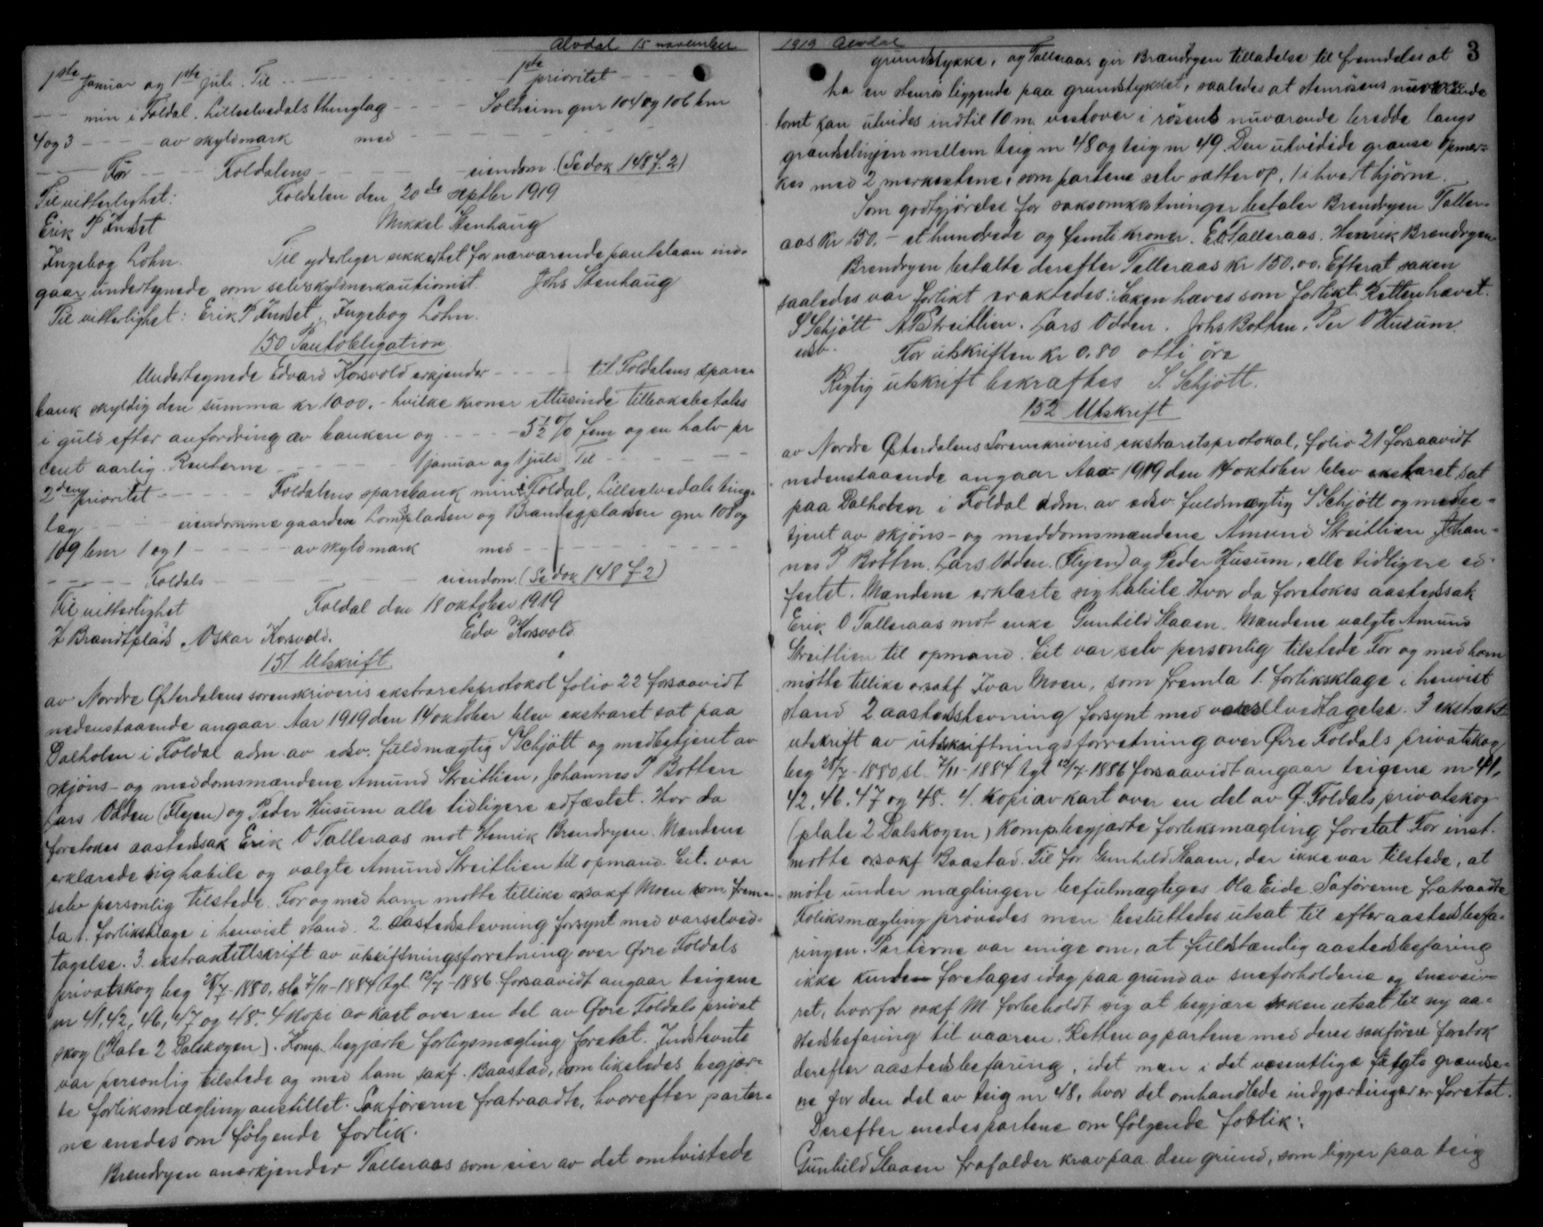 Alvdal 15 november
1ste januar og 1ste juli. Til - - - - 1ste prioritet - - -
- - min i Foldal. Lilleelvedals thinglag - - - - Solheim gnr 104 og 106 bnr
4 og 3 - - - - av skyldmark med - - - -
- - For - - Foldalens - - - - eiendom (Se dok 148 f. 2)
Til vitterlighet: Foldalen den 20de septbr 1919
Erik P Undset Mikkel Stenhaug
Ingebog Lohn. Til yderliger sikkerhet for nærværende pantelaan ind-
gaar undertegnede som selvskyldnerkautionist. Johs Stenhaug
Til vitterlighet: Erik P Undset, Ingebog Lohn.
150 Pantobligation
Undertegnede Edvard Korsvold erkjender - - - - til Foldalens spare-
bank skyldig den summa kr 1000.- hvilke kroner ettusinde tilbakebetales
i guld efter anfordring av banken og - - - - 5½ % fem og en halv pr
cent aarlig. Renterne - - - - 1 januar og 1 juli Til - -
2den prioritet - - - - Foldalens sparebank min i Foldal, Lilleelvedals ting-
lag - - - - eiendomme gaarden plassen og Brandtgplassen gnr 108 og
109 bnr 1 og 1 - - - - av skyldmark med - - - -
- - - - Foldals - - - - eiendom. (Se dok 148 f 2)
Til vitterlighet Foldal den 18 oktober 1919
H Brandtplads. Oskar Korsvold. Edv Korsvold
151 Utskrift
av Nordre Østerdalens sorenskriveris ekstraretsprotokol folio 22 forsaavidt
nedenstaaende angaar. Aar 1919 den 14 oktober blev ekstraret sat paa
Dalholen i Foldal adm av edsv. fuldmægtig S Schjött og medbetjent av
skjøns- og meddomsmændene Amund Streitlien, Johannes P Botten
Lars Odden (Flyen) og Peder Husum alle tidligere edfæstet. Hvor da
foretokes aastedsak Erik O Talleraas mot Henrik Brendryen. Mændene
erklærede sig habile og valgte Amund Streitlien til opmand. Cit. var
selv personlig tilstede. For og med ham møtte tillike o.sakf Moen som frem-
la 1. forliksklage i henvist stand. 2 aastedsstevning forsynt med varselved-
tagelse. 3. ekstraktutskrift av utskiftningsforretning over Øvre Foldals
privatskog beg 28/7-1880, sl. 7/11-1884 tgl 12/7-1886 forsaavidt angaar teigene
nr 41, 42, 46, 47 og 48. 4 kopi av kart over en del av Øvre Foldals privat
skog (Plate 2 Dalskogen). Komp. begjærte forligsmægling foretat. Indstevnte
var personlig tilstede og med ham sakf. Baastad, som likeledes begjær-
te forliksmægling anstillet. Sakførerne fratraadte, hvorefter parter-
ne enedes om følgende forlik.
Brendryen anerkjender Talleraas som eier av det omtvistede
1919 Alvdal
3
grundstykke, og Talleraas gir Brendryen tilladelse til fremdeles at
ha en stenrøs liggende paa grundstykket, saaledes at stenrøsens nuværende
tomt kan utvides indtil 10 m. vestover i røsens nuværende bredde langs
grænselinjen mellem teig nr 48 og teig nr 49. Den utvidede grænse opmer-
kes med 2 merkestene, som partene selv sætter op, 1 i hvert hjørne.
Som godtgjørelse for saksomkostninger betaler Brendryen Taller-
aas kr 150.- et hundrede og femti kroner. E O Talleraas. Henrik Brendryen
Brendryen betalte derefter Talleraas kr 150.00. Efterat saken
saaledes var forlikt eraktedes: Saken hæves som forlikt. Retten hævet.
S Schjött A Streitlien. Lars Odden. Johs Botten. Per O Husum
edsv. For utskriften kr 0.80 otti øre
Rigtig utskrift bekræftes S. Schjött.
152 Utskrift
av Nordre Østerdalens Sorenskriveris ekstraretsprotokol, folio 21 forsaavidt
nedenstaaende angaar Aar 1919 den 14 oktober blev ekstraret sat
paa Dalholen i Foldal adm. av edsv fuldmægtig S Schjött og medbe-
tjent av skjøns- og meddomsmændene Amund Streitlien Johan-
nes P Botten. Lars Odden. (Flyen) og Peder Husum, alle tidligere ed-
festet. Mændene erklærte sig habile. Hvor da foretokes aastedssak
Erik O Talleraas mot enke Gunhild Staaen. Mændene valgte Amund
Streitlien til opmand. Cit var selv personlig tilstede For og med ham
møtte tillike o.sakf Ivar Moen, som fremla 1. forliksklage i henvist
stand 2 aastedsstevning forsynt med varselvedtagelse. 3 ekstrakt-
utskrift av utskiftningsforretning over Øvre Foldals privatskog
beg 28/7-1880 sl. 7/11-1884 tgl 12/7-1886 forsaavidt angaar teigene nr 41,
42, 46, 47 og 48. 4. kopi av kart over en del av Ø. Foldals privatskog
(plate 2 Dalskogen) Komp. begjærte forliksmægling foretat For inst.
møtte o.sakf Baastad. Til for Gunhild Staaen, der ikke var tilstede, at
møte under mæglingen befulmægtiges Ola Eide Saførerne fratraadte
Foliksmægling prøvedes men besluttedes utsat til efter aastedsbefa-
ringen. Parterne var enige om, at fuldstændig aastedsbefaring
ikke kunde foretages idag paa grund av sneforholdene og sneveiv-
ret, hvorfor sakf M. forbeholdt sig at begjære saken utsat til ny aa-
stedsbefaring til vaaren. Retten og partene med deres sakførere foretok
derefter aastedsbefaring, idet man i det væsentlige fulgte grændse-
ne for den del av teig nr 48, hvor det omhandlede indgjærdinger er foretat.
Derefter enedes partene om følgende forlik:
Gunhild Staaen frafalder krav paa den grund, som ligger paa teig